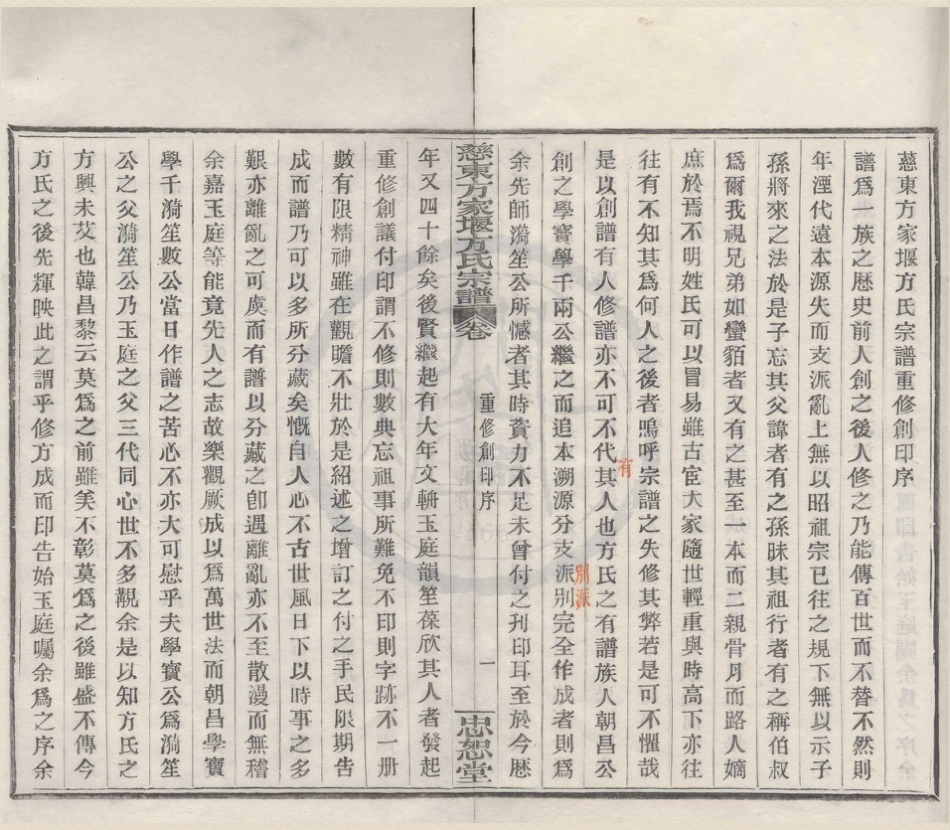 慈東方家堰方氏宗譜重修創印序
譜爲一族之歷史前人創之後人修之乃能傳百世而不替不然則
年湮代遠本源失而支派亂上無以昭祖宗已往之規下無以示子
孫將來之法於是子忘其父諱者有之孫昧其祖行者有之稱伯叔
爲爾我視兄弟如蠻貊者又有之甚至一本而二親骨月而路人嫡
庶於焉不明姓氏可以冒易雖古宦大家隨世輕重與時高下亦往
往有不知其爲何人之後者嗚呼宗譜之失修其弊若是可不懼哉
有
是以創譜有人修譜亦不可不代其人也方氏之有譜族人朝昌公
別派
創之學寶學千兩公繼之而追本溯源分支派別完全作成者則爲
余先師漪笙公所憾者其時資力不足未曾付之刊印耳至於今歷
慈東方家堰方氏宗譜 卷
重修創印序
一
忠恕堂
年又四十餘矣後賢繼起有大年文斬玉庭韻笙葆欣其人者發起
重修創議付印謂不修則數典忘祖事所難免不印則字跡不一册
數有限精神雖在觀瞻不壯於是紹述之增訂之付之手民限期告
成而譜乃可以多所分藏矣慨自人心不古世風日下以時事之多
艱亦離亂之可虞而有譜以分藏之卽遇離亂亦不至散漫而無稽
余嘉玉庭等能竟先人之志故樂觀厥成以爲萬世法而朝昌學寶
學千漪笙數公當日作譜之苦心不亦大可慰乎夫學寶公爲漪笙
公之父漪笙公乃玉庭之父三代同心世不多覯余是以知方氏之
方興未艾也韓昌黎云莫爲之前雖美不彰莫爲之後雖盛不傳今
方氏之後先輝映此之謂乎修方成而印告始玉庭囑余爲之序余